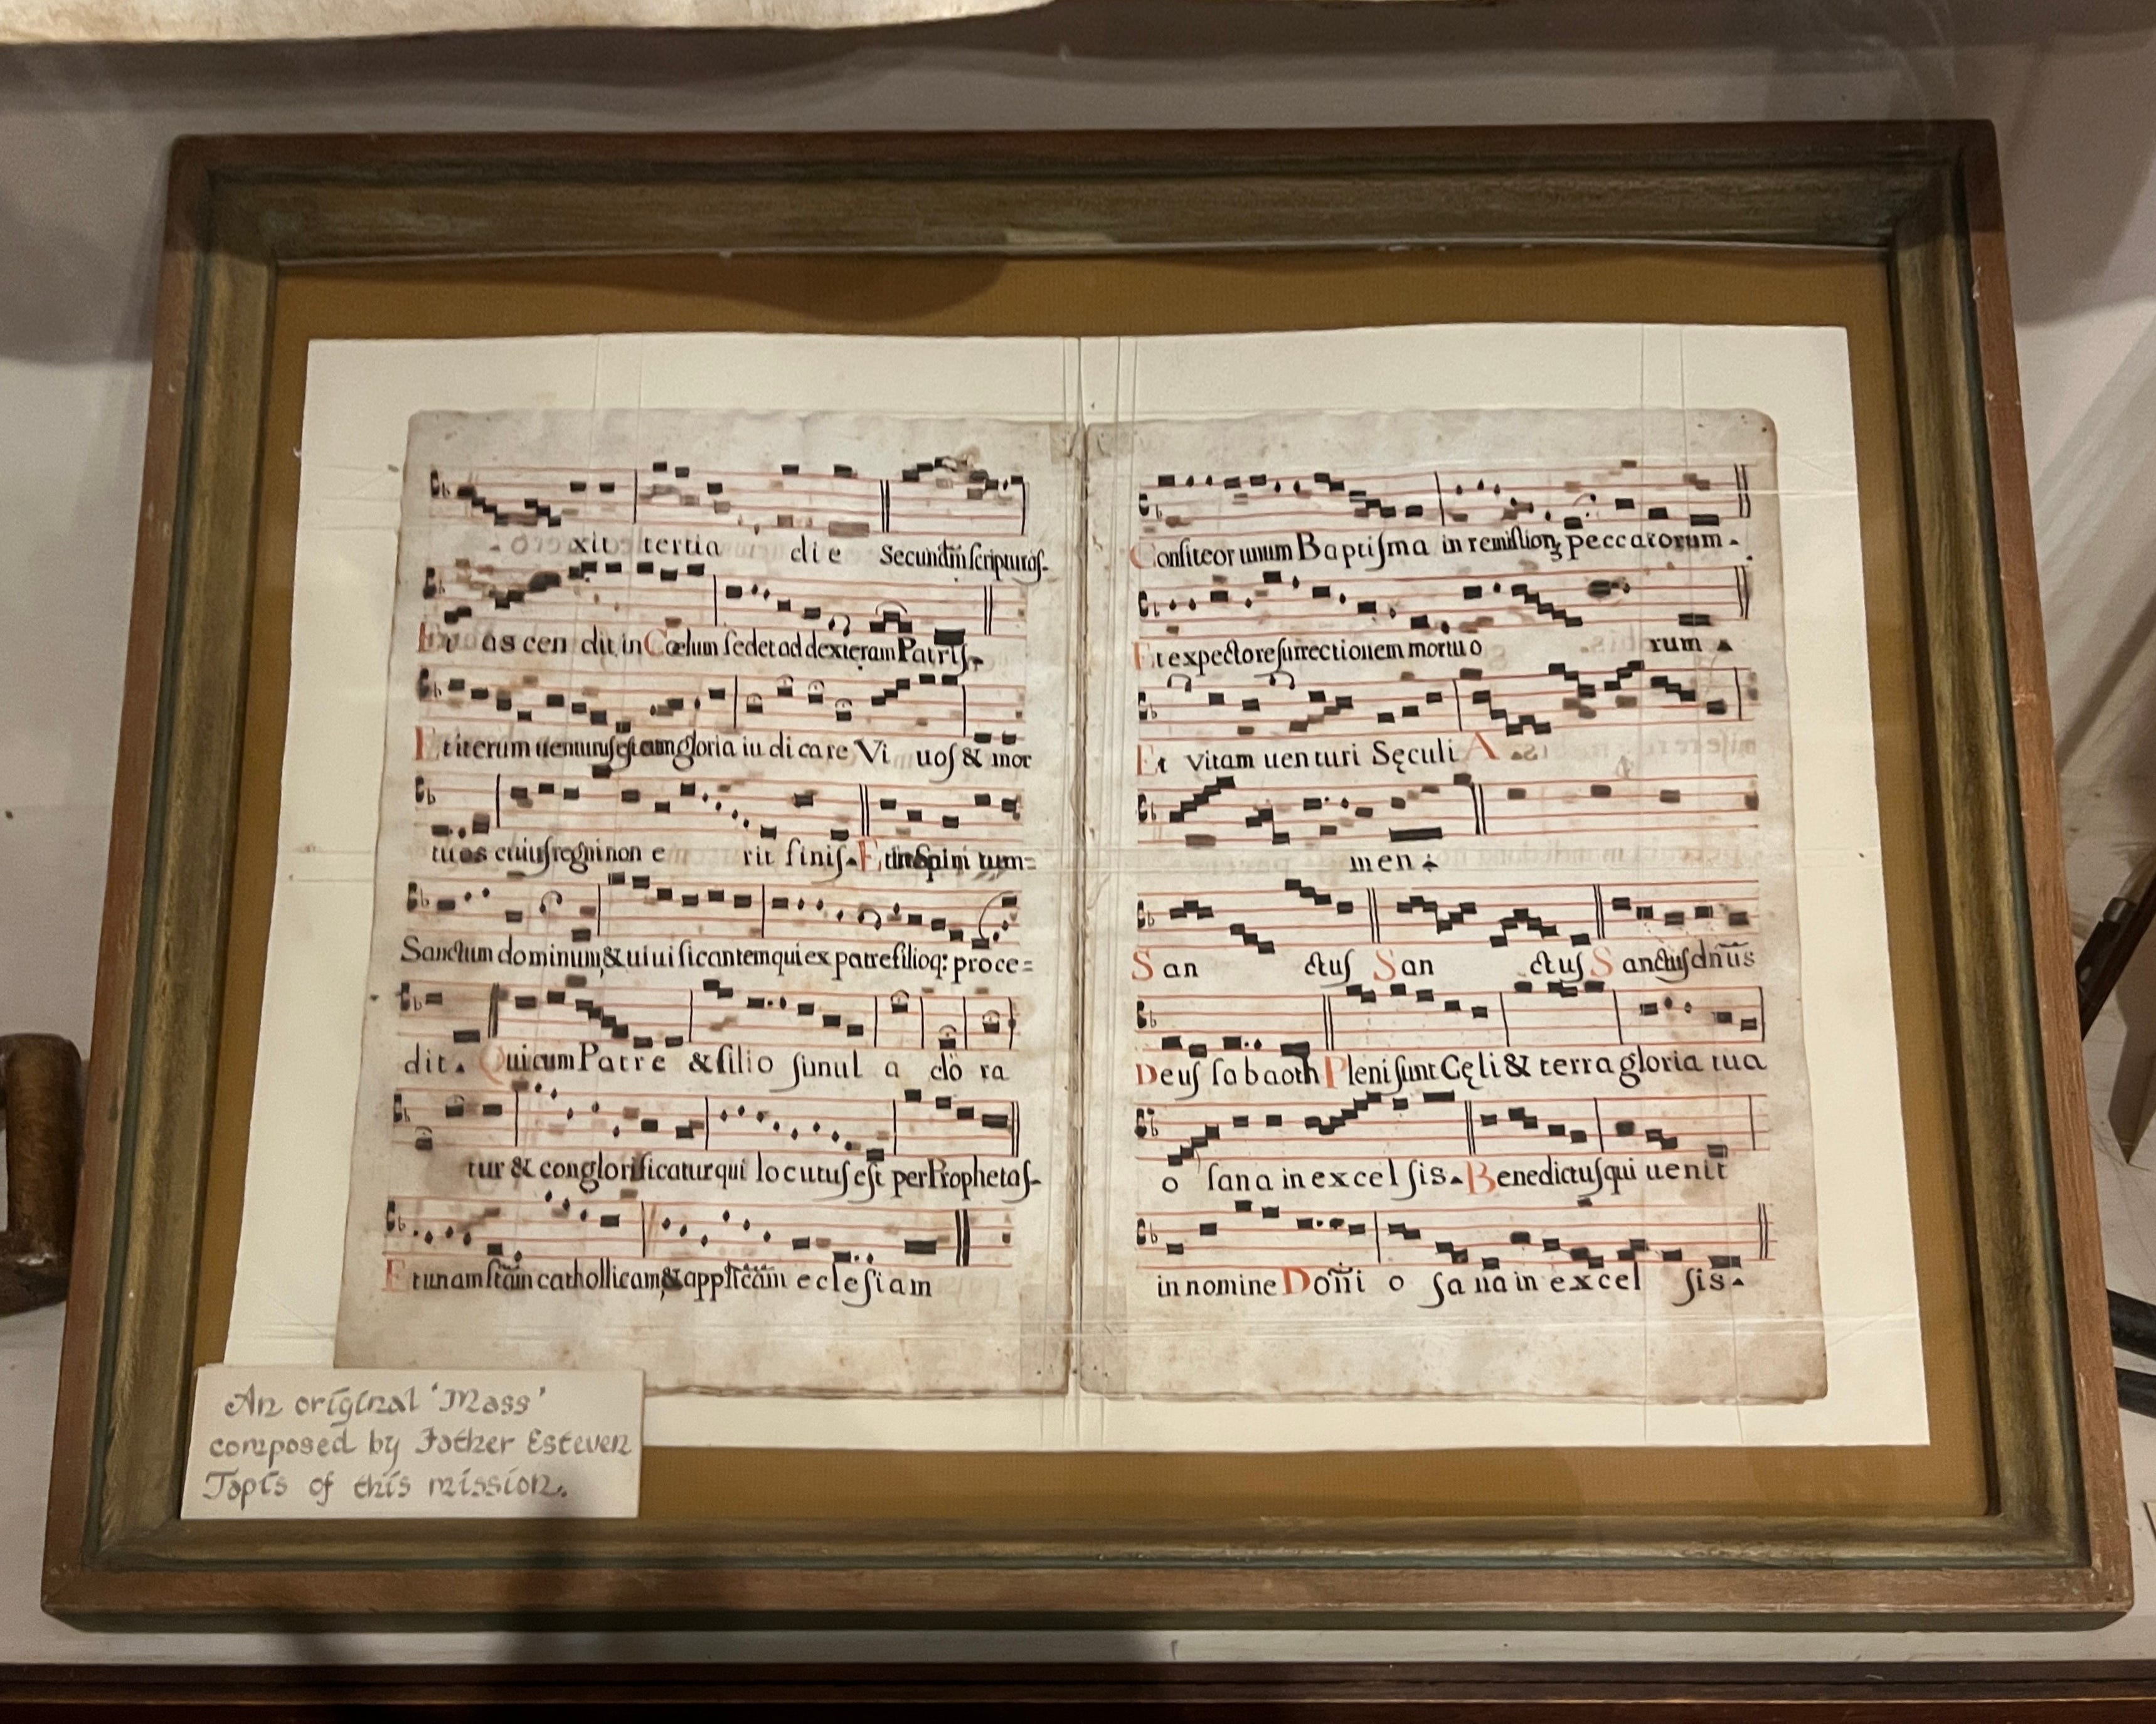 xit tertia die Secundũ scripturas.
Et as cen dit in Cœlum sedet ad dexteram Patris.
Et iterum uenturus est cum gloria iu di care Vi uos & mor
tuos cuius regni non e rit finis. Et in Spiri tum=
Sanctum dominum, & uiuificantem qui ex patre filioq: proce=
dit. Qui cum Patre & filio simul a do ra
tur & conglorificatur qui locutus est per Prophetas.
Et unam stãm cathollicam, & applicãm eclesiam
Confiteor unum Baptisma in remissionẽ peccatorum.
Et expecto resurrectionem mortuo rum
Et vitam uen turi Sęculi A
men.
San ctus San ctus Sanctus dñus
Deus sabaoth Pleni sunt Cęli & terra gloria tua
o sana in excelsis. Benedictus qui uenit
in nomine Doñi o sa na in excel sis.
An original 'Mass'
composed by Father Esteven
Tapis of this mission.